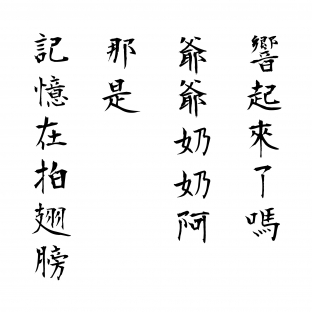 響起來了嗎
爺爺奶奶阿
那是
記憶在拍翅膀